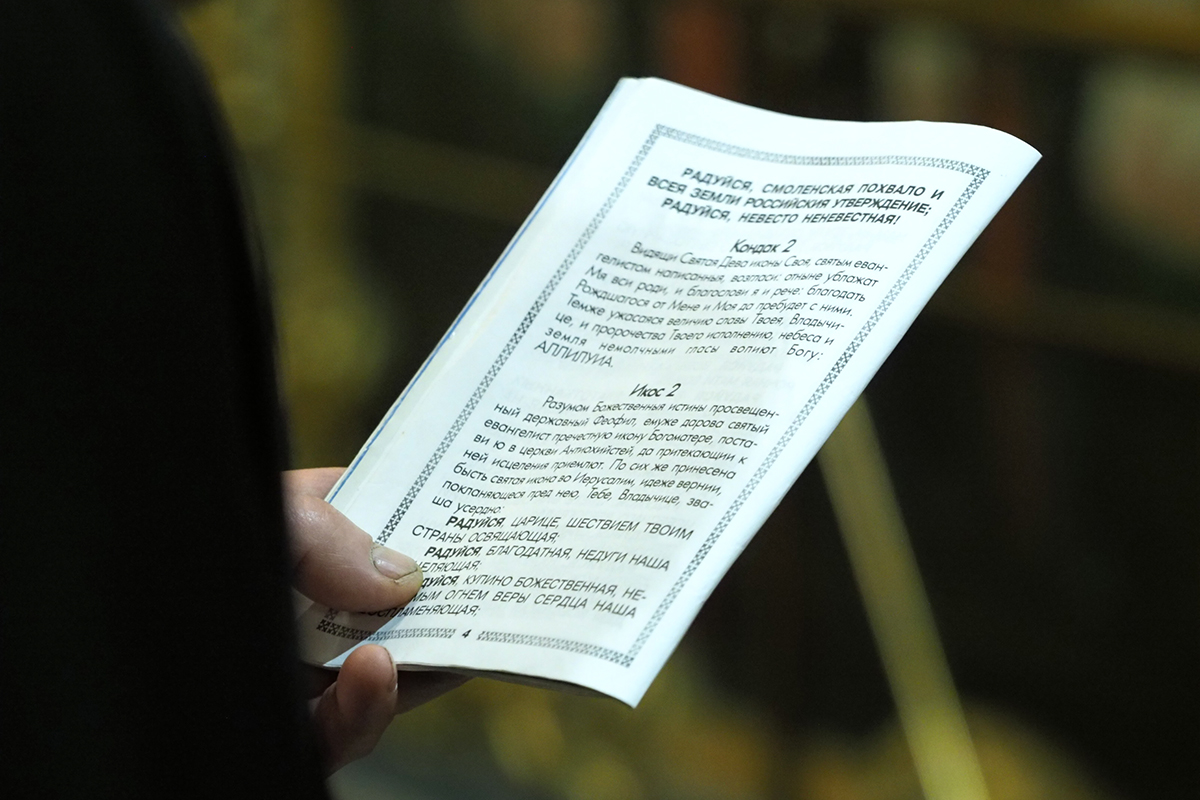 РАДУЙСЯ, СМОЛЕНСКАЯ ПОХВАЛО И
ВСЕЯ ЗЕМЛИ РОССИЙСКИЯ УТВЕРЖДЕНИЕ;
РАДУЙСЯ, НЕВЕСТО НЕНЕВЕСТНАЯ!
Кондак 2
Видящи Святая Дева иконы Своя, святым еван-
гелистом написанныя, возгласи: отныне ублажат
Мя вси роди, и благослови я и рече: благодать
Рождшагося от Мене и Моя да пребудет с ними.
Темже ужасаяся величию славы Твоея, Владычи-
це, и пророчества Твоего исполнению, небеса и
земля немолчными гласы вопиют Богу:
АЛЛИЛУИА.
Икос 2
Разумом Божественныя истины просвещен-
ный державный Феофил, емуже дарова святый
евангелист пречестную икону Богоматере, поста-
ви ю в церкви Антиохийстей, да притекающии к
ней исцеления приемлют. По сих же принесена
бысть святая икона во Иерусалим, идеже вернии,
покланяющеся пред нею, Тебе, Владычице, зва-
ша усердно:
РАДУЙСЯ, ЦАРИЦЕ, ШЕСТВИЕМ ТВОИМ
СТРАНЫ ОСВЯЩАЮЩАЯ;
РАДУЙСЯ, БЛАГОДАТНАЯ, НЕДУГИ НАША
ЕЛЯЮЩАЯ;
ДУЙСЯ, КУПИНО БОЖЕСТВЕННАЯ, НЕ-
МЫМ ОГНЕМ ВЕРЫ СЕРДЦА НАША
ВОСПЛАМЕНЯЮЩАЯ;
4